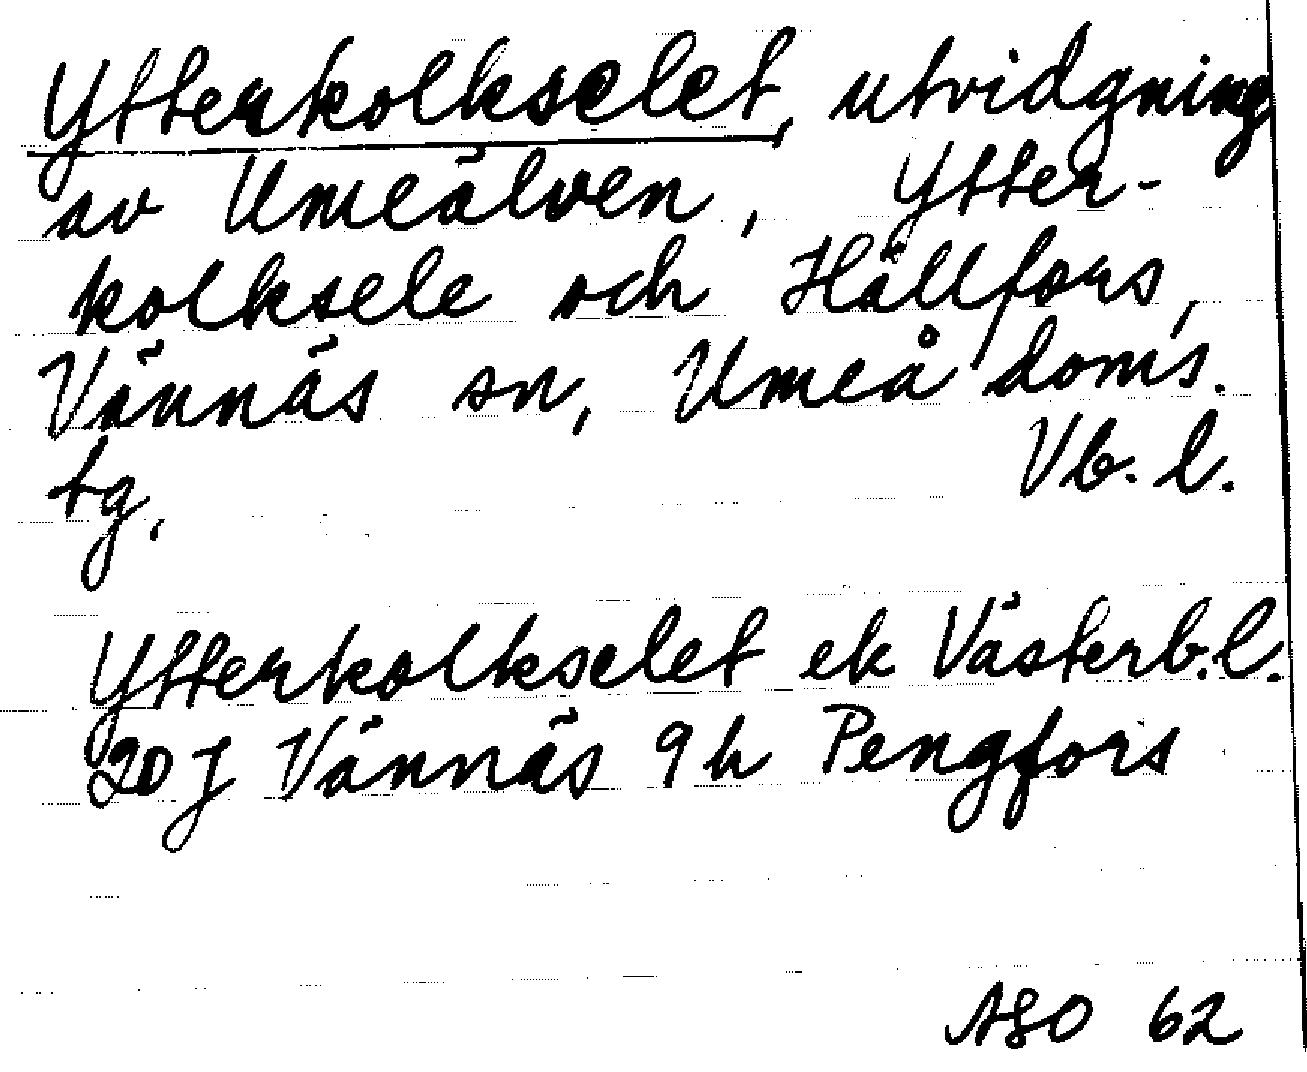 Ytterkolkselet, utvidgning
av Umeälven, Ytter-
kolksele och Hällfors,
Vännäs sn, Umeå doms.
tg, Vb. l.
Ytterkolkselet ek Västerb.l.
20 J Vännäs 9 h Pengfors
ASO 62